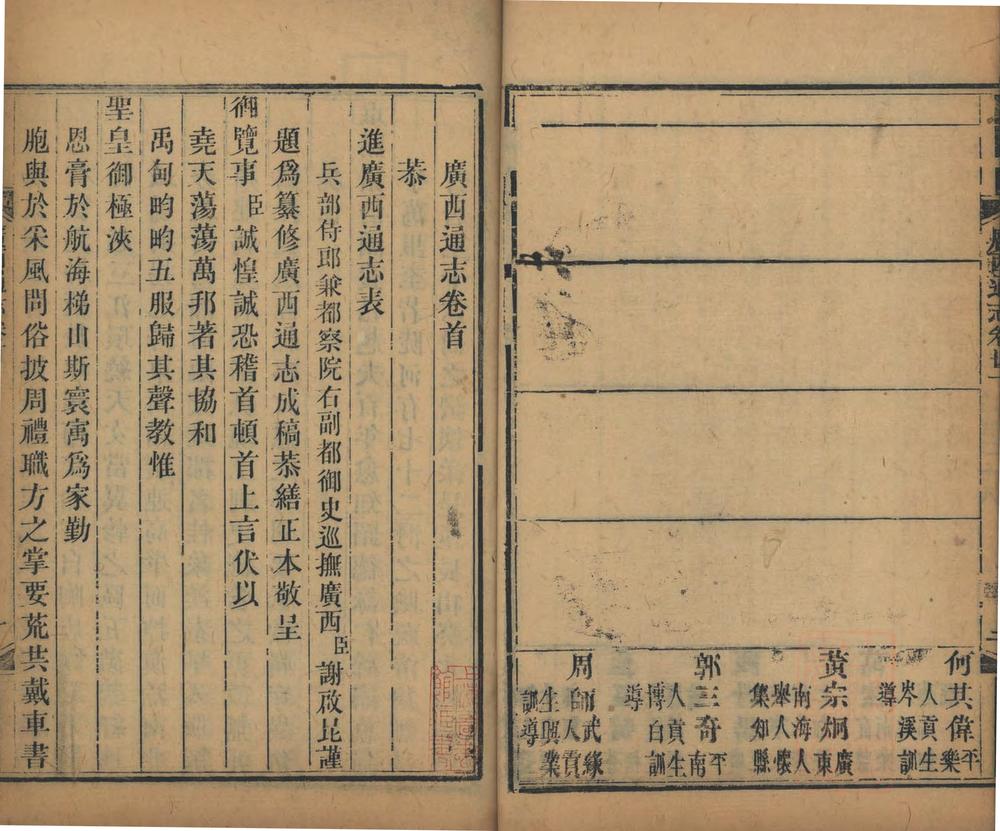 何其偉平樂
人貢生
岑溪訓
導
黄宗炯廣東
南海人
舉人懷
集知縣
郭三奇平南
人貢生
博白訓
導
周師武緣
人貢
生興業
訓導
廣西通志卷首
恭
進廣西通志表
兵部侍郎兼都察院右副都御史巡撫廣西臣謝啟昆謹
題爲纂修廣西通志成稿恭繕正本敬呈
御覽事臣誠惶誠恐稽首頓首上言伏以
堯天蕩蕩萬邦著其協和
禹甸畇畇五服歸其聲教惟
聖皇御極浹
恩膏於航海梯山斯寰寓爲家勤
胞與於采風問俗披周禮職方之掌要荒共戴車書